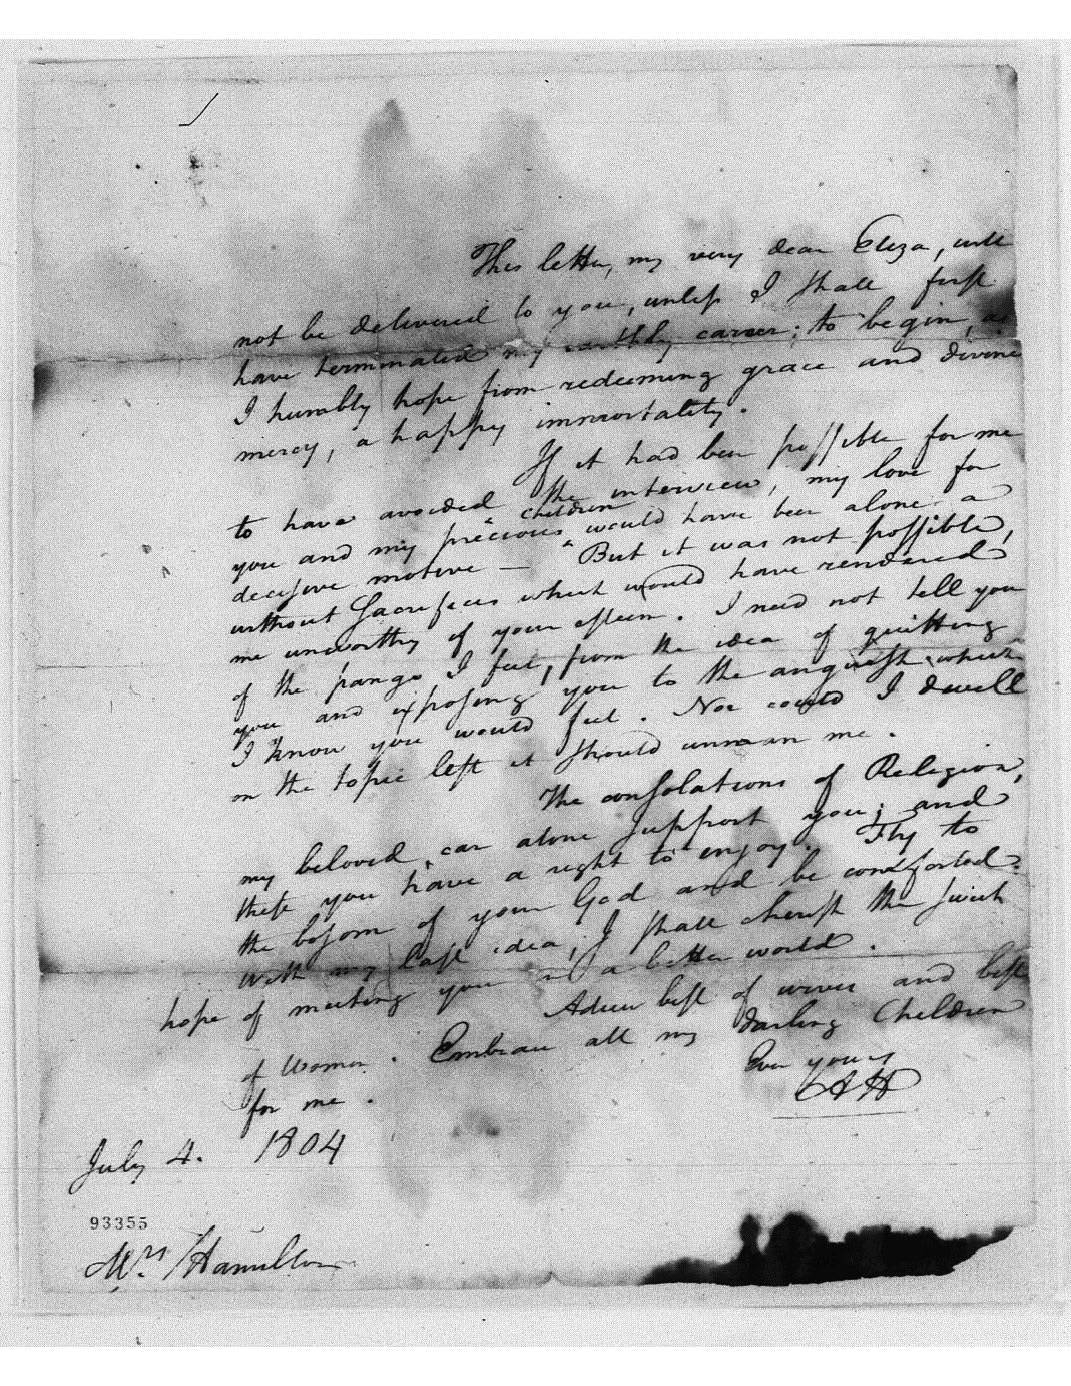 This letter, my very dear Eliza, will
not be delivered to you, unless I shall first
have terminated my earthly career; to begin, as
I humbly hope from redeeming grace and divine
mercy, a happy immortality.
If it had been possible for me
to have avoided the interview, my love for
you and my precious children would have been alone a
decisive motive — But it was not possible,
without sacrifices which would have rendered
me unworthy of your esteem. I need not tell you
of the pangs I feel, from the idea of quitting
you and exposing you to the anguish which
I know you would feel. Nor could I dwell
on the topic lest it should unman me.
The consolations of Religion,
my beloved, can alone support you; and
these you have a right to enjoy. Fly to
the bosom of your God and be comforted.
With my last idea, I shall cherish the sweet
hope of meeting you in a better world.
Adieu best of wives and best
of Women. Embrace all my darling Children
for me.
Ever yours
AH
July 4. 1804
93355
Mrs. Hamilton